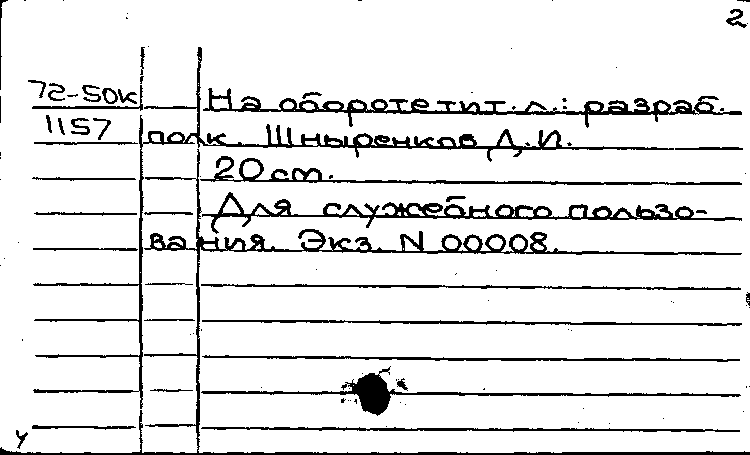 2
72-50к На обороте тит. л.: разраб.
1157 полк. Шныренков Д.И.
20 см.
Для служебного пользо-
вания. Экз. N 00008.
у